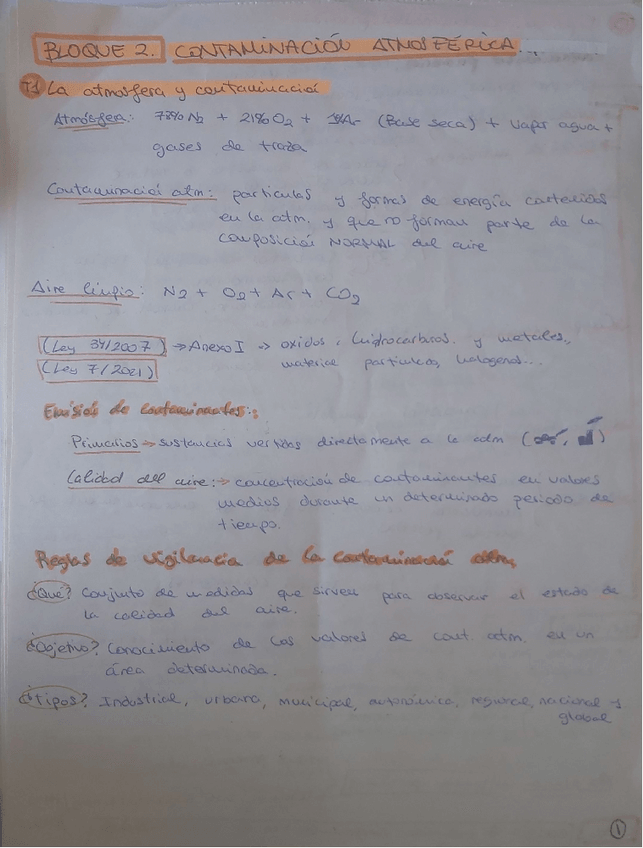 BLOQUE 2. CONTAMINACIÓN ATMOSFÉRICA.
T1 La atmosfera y contaminación
Atmósfera: 78% N2 + 21% O2 + 1% Ar (Base seca) + Vapor agua +
gases de traza
Contaminación atm: partículas y formas de energía contenidas
en la atm. y que no forman parte de la
composición NORMAL del aire
Aire limpio: N2 + O2 + Ar + CO2
(Ley 34/2007) → Anexo I → oxidos, hidrocarburos. y metales,
(Ley 7/2021) material particulado, halogenos...
Emisión de contaminantes:
Primarios → sustancias vertidas directamente a la atm ( , )
Calidad del aire: → concentración de contaminantes en valores
medios durante un determinado periodo de
tiempo.
Reglas de vigilancia de la contaminación atm.
¿Qué? Conjunto de medidas que sirven para observar el estado de
la calidad del aire.
¿Objetivo? Conocimiento de los valores de cont. atm. en un
área determinada.
¿Tipos? Industrial, urbana, municipal, autonómica, regional, nacional y
global
1